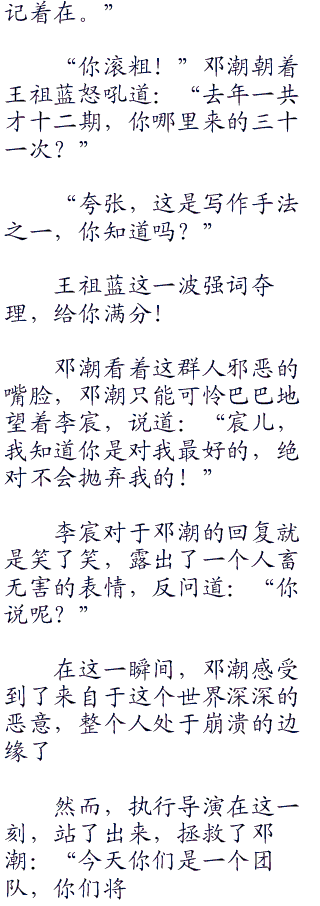 记着在。”
“你滚粗！”邓潮朝着
王祖蓝怒吼道：“去年一共
才十二期，你哪里来的三十
一次？”
“夸张，这是写作手法
之一，你知道吗？”
王祖蓝这一波强词夺
理，给你满分！
邓潮看着这群人邪恶的
嘴脸，邓潮只能可怜巴巴地
望着李宸，说道：“宸儿，
我知道你是对我最好的，绝
对不会抛弃我的！”
李宸对于邓潮的回复就
是笑了笑，露出了一个人畜
无害的表情，反问道：“你
说呢？”
在这一瞬间，邓潮感受
到了来自于这个世界深深的
恶意，整个人处于崩溃的边
缘了
然而，执行导演在这一
刻，站了出来，拯救了邓
潮：“今天你们是一个团
队，你们将